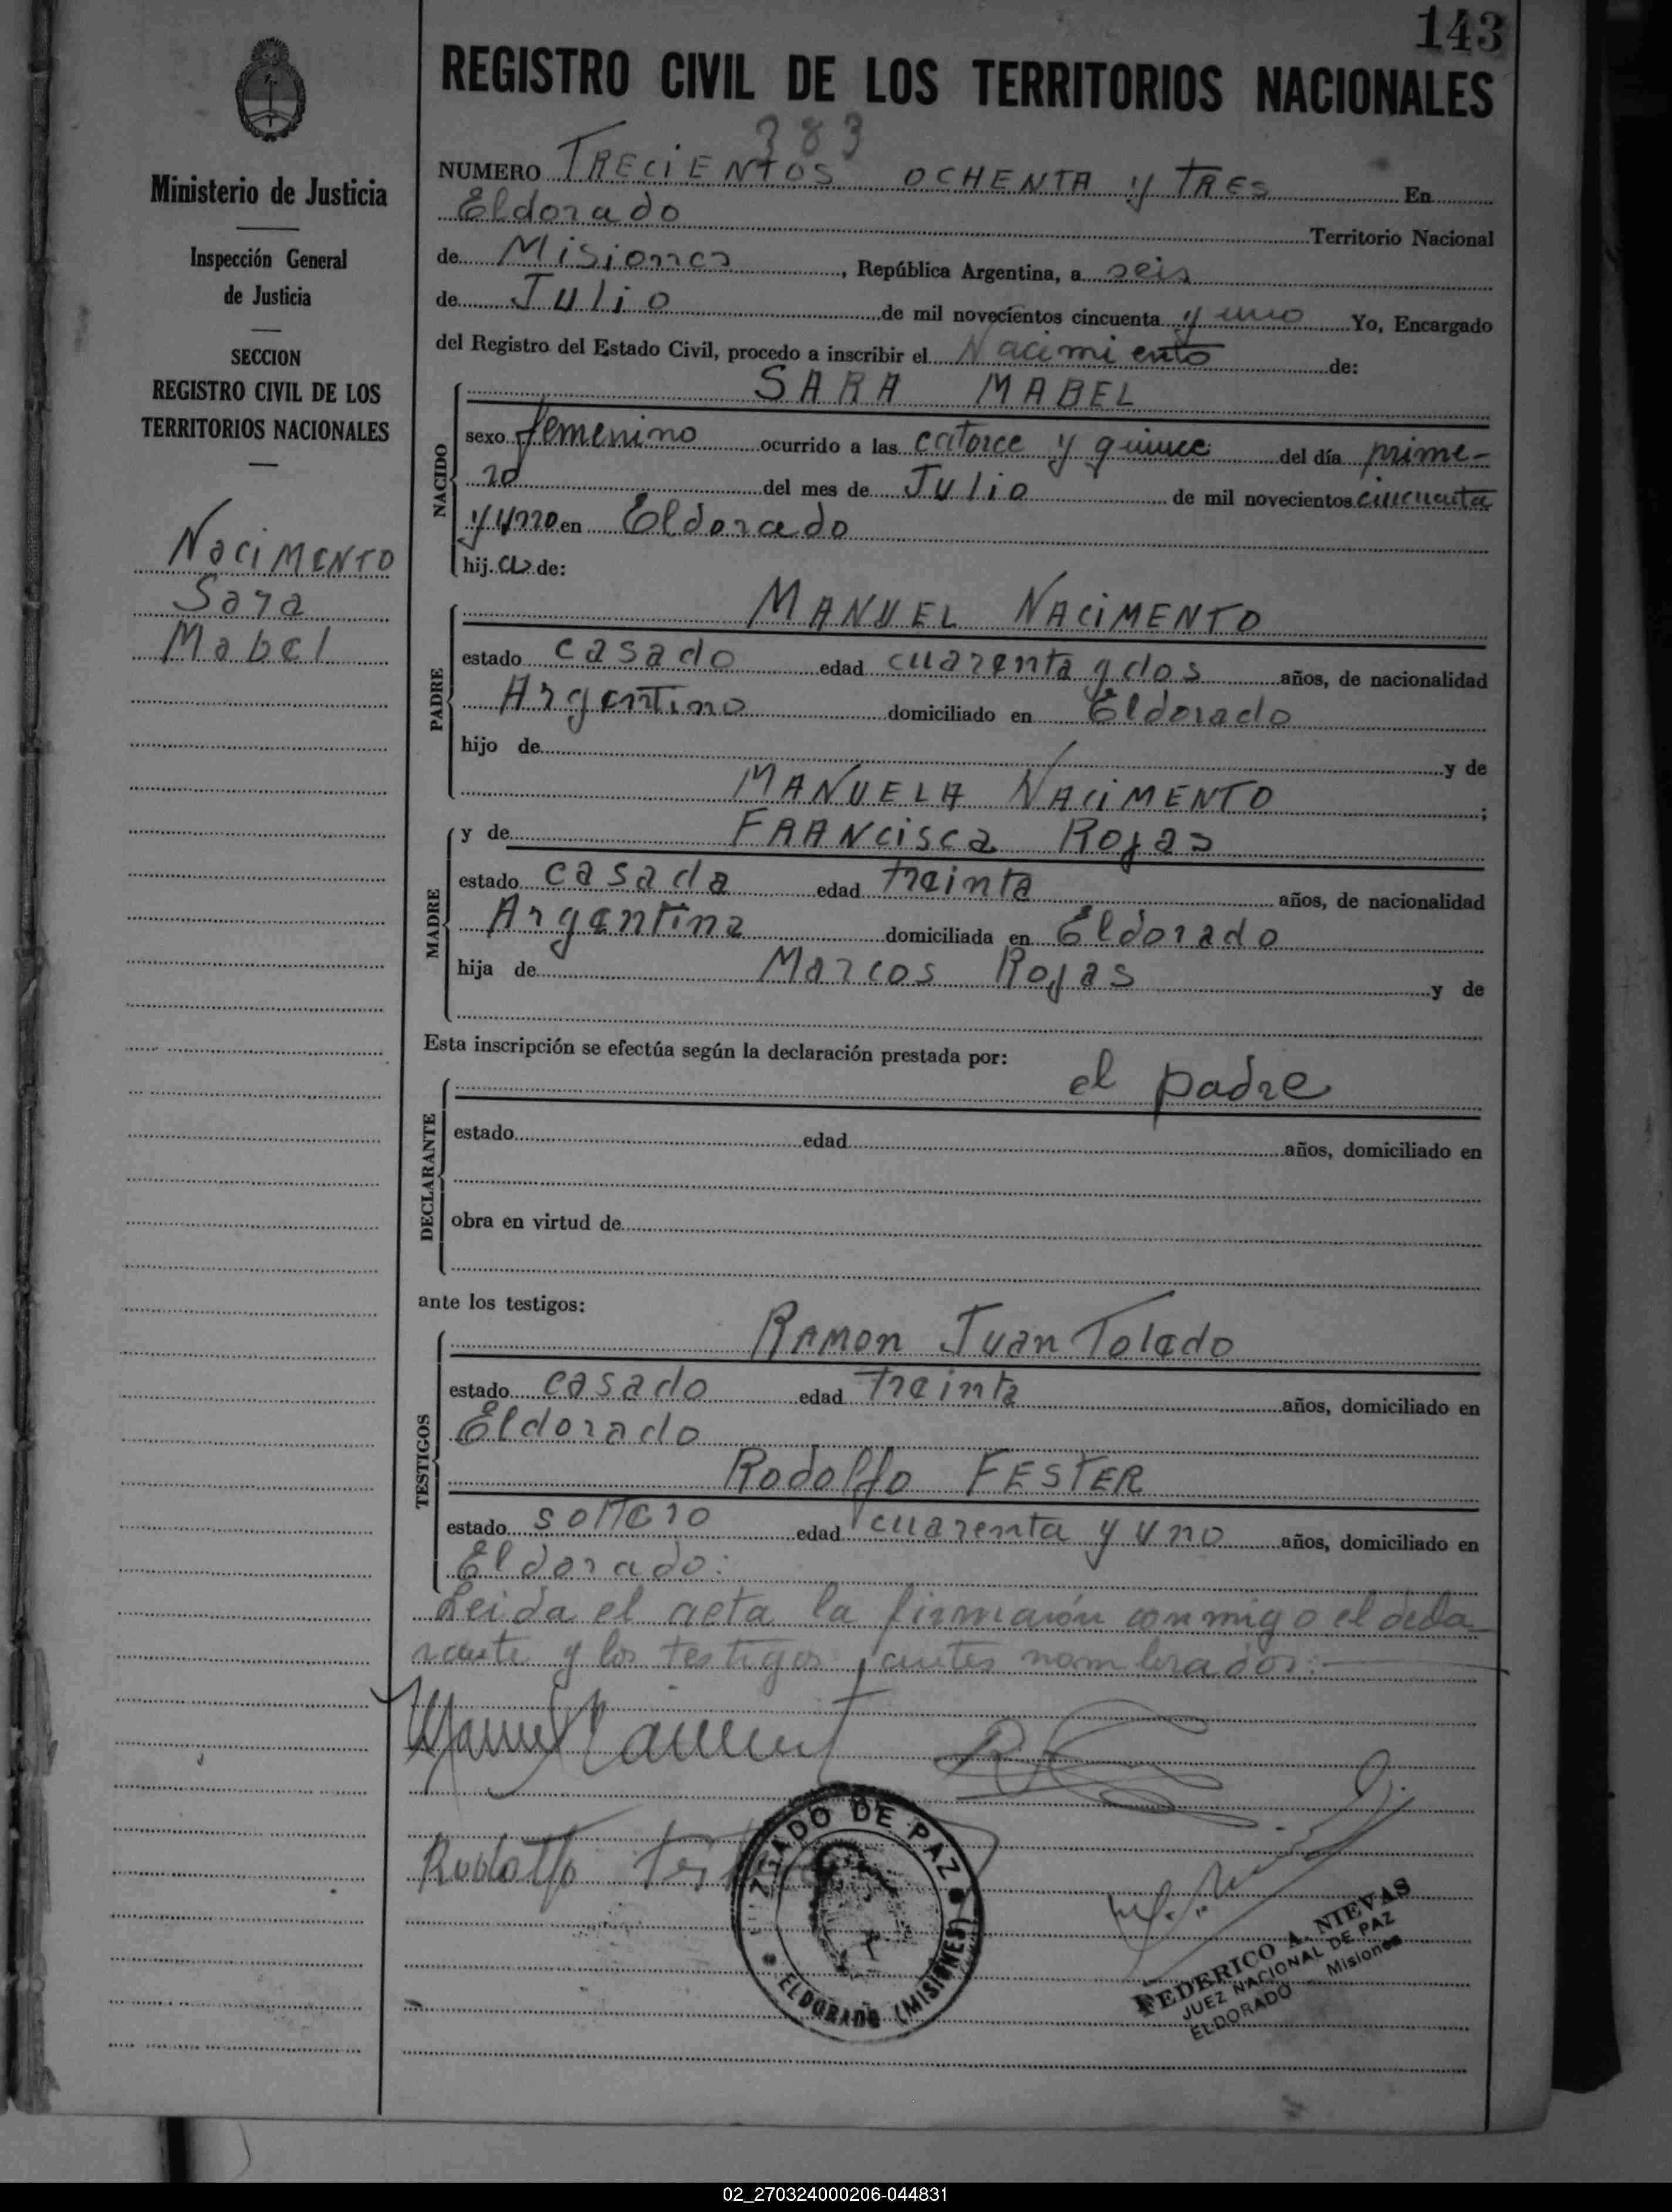 143
REGISTRO CIVIL DE LOS TERRITORIOS NACIONALES
Ministerio de Justicia
Inspección General
de Justicia
SECCION
REGISTRO CIVIL DE LOS
TERRITORIOS NACIONALES
NaciMENTO
Sara
Mabel
383
NUMERO TRECIENTOS OCHENTA y TRES En
Eldorado Territorio Nacional
de Misiones, República Argentina, a seis
de Julio de mil novecientos cincuenta y uno Yo, Encargado
del Registro del Estado Civil, procedo a inscribir el Nacimiento de:
SARA MABEL
NACIDO
sexo femenino ocurrido a las catorce y quince del día prime-
ro del mes de Julio de mil novecientos cincuenta
y uno en Eldorado
hij a de:
MANUEL NACIMENTO
PADRE
estado casado edad cuarenta y dos años, de nacionalidad
Argentino domiciliado en Eldorado
hijo de y de
MANUELA NACIMENTO ;
y de FRANCisca Rojas
MADRE
estado casada edad treinta años, de nacionalidad
Argentina domiciliada en Eldorado
hija de Marcos Rojas y de
Esta inscripción se efectúa según la declaración prestada por:
el padre
DECLARANTE
estado edad años, domiciliado en
obra en virtud de
ante los testigos:
RAMON Juan Toledo
TESTIGOS
estado casado edad treinta años, domiciliado en
Eldorado
Rodolfo FESTER
estado soltero edad cuarenta y uno años, domiciliado en
Eldorado:
Leida el acta la firmarón conmigo el decla-
rante y los testigos antes nombrados:
Manuel
Rodolfo Fester
JUZGADO DE PAZ
ELDORADO (MISIONES)
FEDERICO A. NIEVAS
JUEZ NACIONAL DE PAZ
ELDORADO - Misiones
02_270324000206-044831